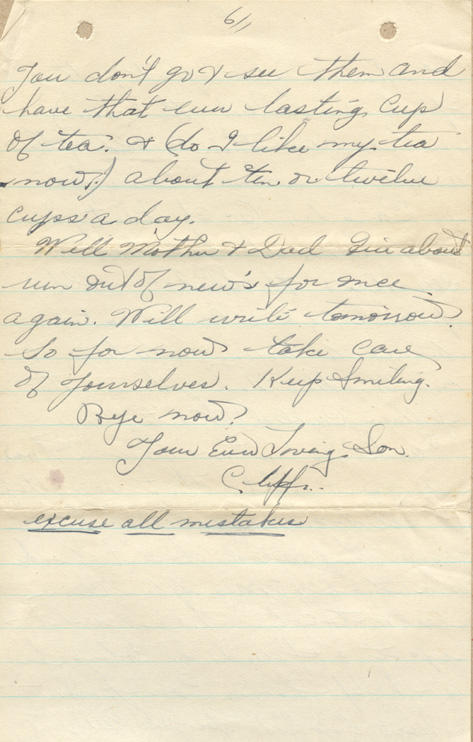 6//
You don't go & see them and
have that ever lasting cup
of tea. & (do I like my tea
now.) about ten or twelve
cups a day.
Well Mother & Dad I've about
run out of new's for once
again. Will write tomorrow.
So for now take care
of yourselves. Keep Smiling.
Bye now.
Your Ever Loving Son.
Cliff..
excuse all mistakes